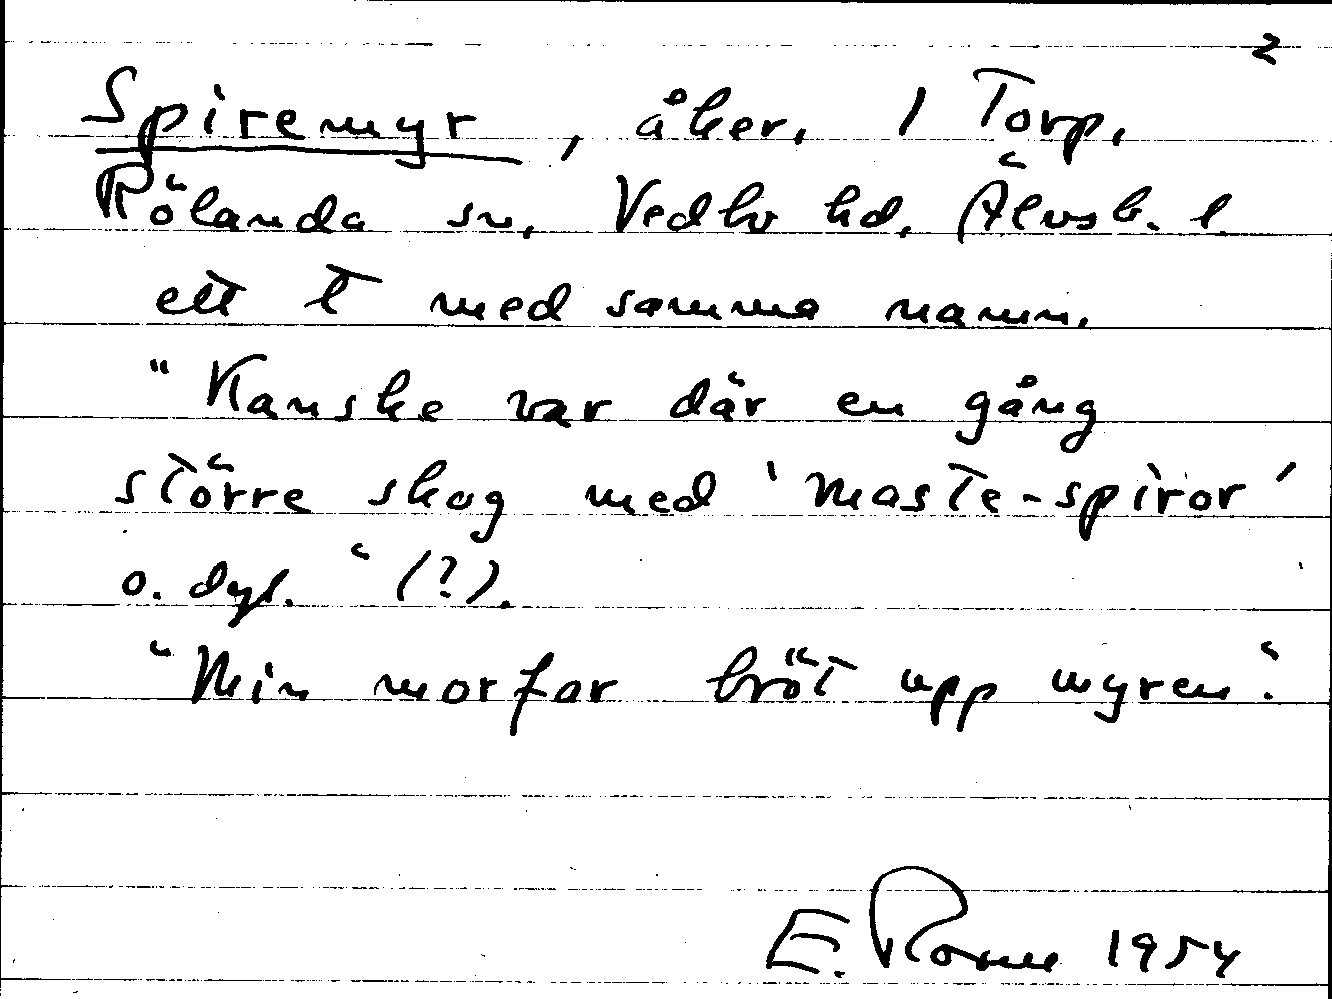 2
Spiremyr, åker, 1 Torp,
Rölanda sn, Vedbo hd, Älvsb. l.
ett t med samma namn.
"Kanske var där en gång
större skog med 'maste-spiror'
o. dyl." (?).
"Min morfar bröt upp myren".
E. 1954